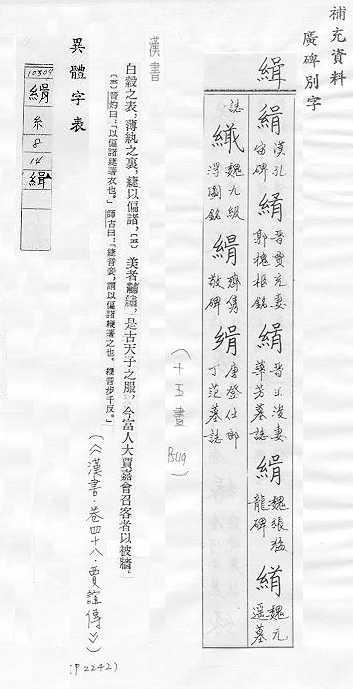 補充資料
廣碑別字
緝
緝 漢孔宙碑
緝 晉賈充妻郭槐柩銘
緝 晉王浚妻華芳墓誌
緝 魏張猛龍碑
緝 魏元遥墓
誌
魏九級浮圖銘
緝 齊雋敬碑
緝 唐登仕郎丁范墓誌
(十五畫 P519)
漢書
白縠之表,薄紈之裏,緁以偏諸,美者黼繡,是古天子之服,今富人大賈嘉會召客者以被牆。
晉灼曰:「以偏諸緶著衣也。」師古曰:「緁音妾,謂以偏諸緶著之也。緶音步千反。」
(《漢書·卷四十八·賈誼傳》)
(P2242)
異體字表
10309
緝
糸
8
14
緝